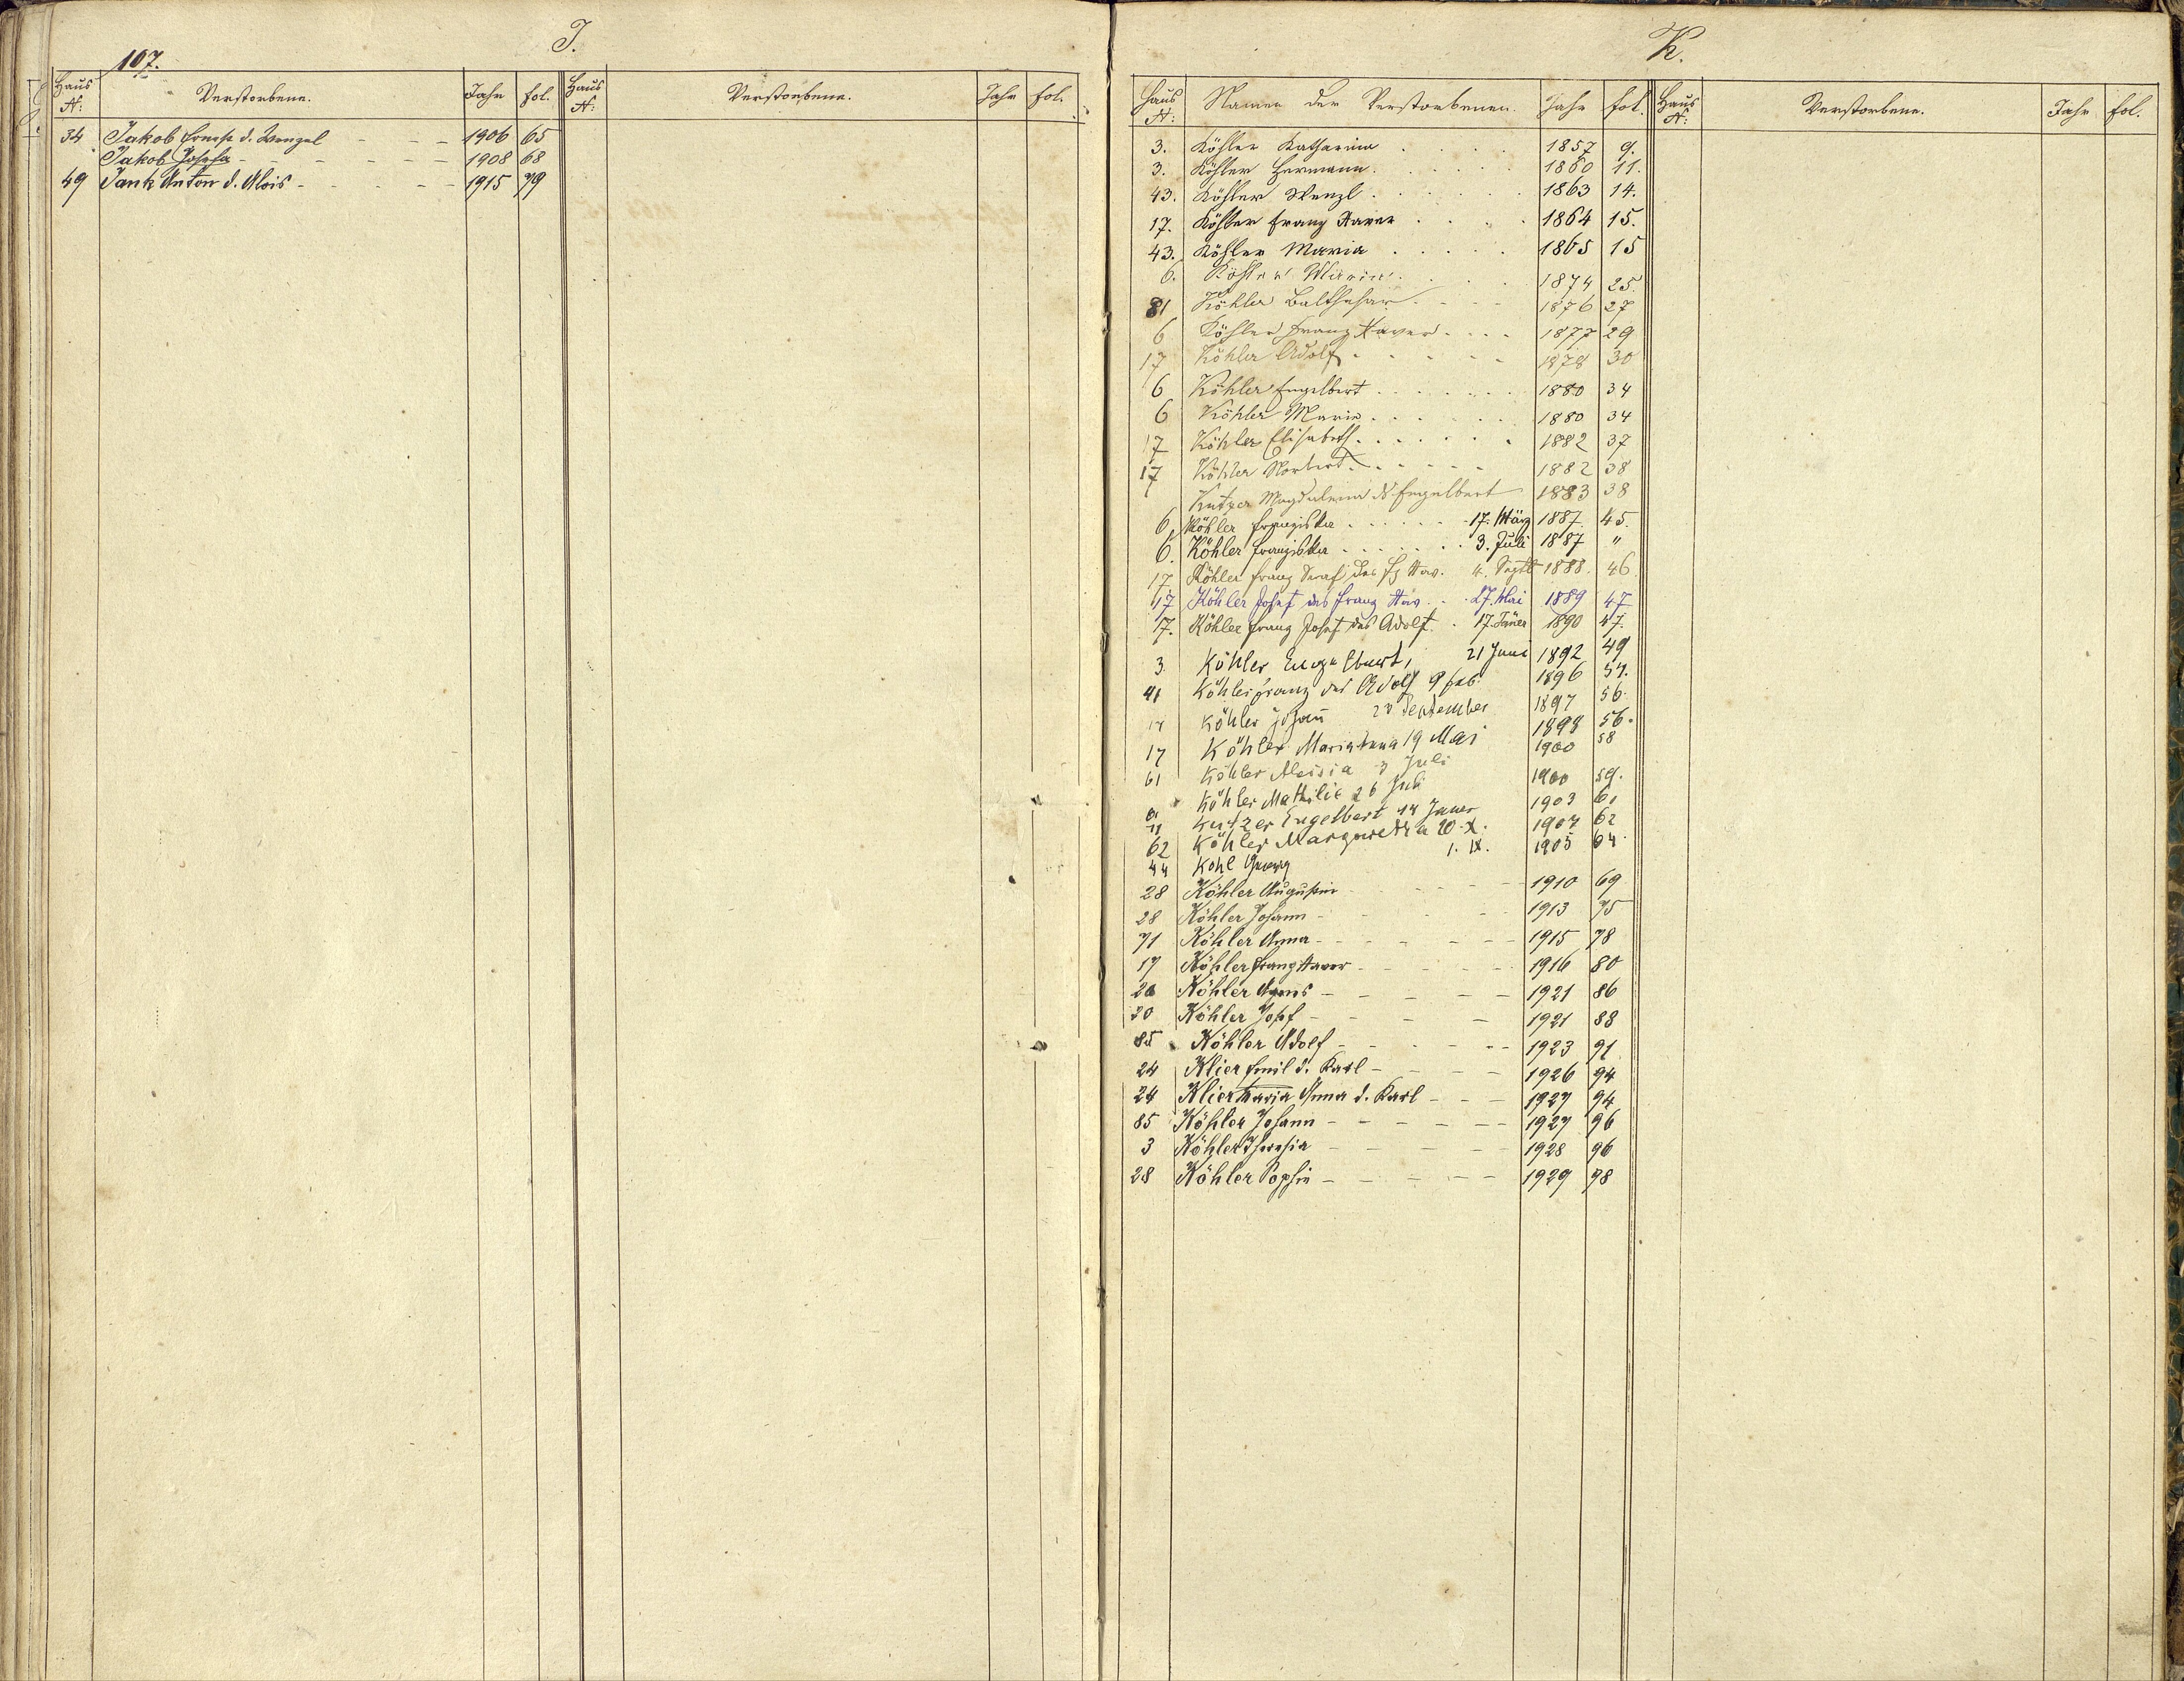 107.
J.
Haus N: Verstorbene. Jahr fol. Haus N: Verstorbene. Jahr fol.
34 Jakob Ernest d. Wenzel 1906 65
Jakob Josefa 1908 68
49 Jank Anton d. Alois 1915 79
K.
Haus N: Namen der Verstorbenen. Jahr fol. Haus N: Verstorbene. Jahr fol.
3. Köhler Katharina 1857 9.
3. Köhler Hermann 1860 11.
43. Köhler Wenzl 1863 14.
17. Köhler Franz Xaver 1864 15.
43. Köhler Maria 1865 15
6. Köhler Maria 1874 25.
81 Köhler Balthasar 1876 27
6 Köhler Franz Xaver 1877 29
17 Köhler Adolf 1878 30
6 Köhler Engelbert 1880 34
6 Köhler Maria 1880 34
17 Köhler Elisabeth 1882 37
17 Köhler Norbert 1882 38
Kutzer Magdalena d Engelbert 1883 38
6. Köhler Franziska 17. März 1887. 45.
6. Köhler Franziska 3. Juli 1887 "
17 Köhler Franz Seraf des Fz Xav. 4. Septb 1888. 46
17 Köhler Josef des Franz Xav. 27. Mai 1889 47
17. Köhler Franz Josef des Adolf 17. Jäner 1890 47.
3. Köhler Engelbert, 21 Juni 1892 49
41 Köhler Franz des Adolf 9 Feb. 1896 54.
17 Köhler Johañ 23 September 1897 56.
17 Köhler Maria Anna 19 Mai 1898 56.
61 Köhler Aloisia 3 Juli 1900 58
Köhler Mathilde 26 Juli 1900 59.
Kutzer Engelbert 14 Jäner 1903 61
62 Köhler Margaretha 20. X. 1904 62
44 Kohl Georg 1. IX. 1905 64.
28 Köhler Augustin 1910 69
28 Köhler Johann 1913 75
71 Köhler Anna 1915 78
17 Köhler Franz Xaver 1916 80
20 Köhler Agnes 1921 86
20 Köhler Josef 1921 88
85 Köhler Adolf 1923 91
24 Klier Emil d. Karl 1926 94
24 Klier Maria Anna d. Karl 1927 94
85 Köhler Johann 1927 96
3 Köhler Theresia 1928 96
28 Köhler Sophie 1929 98